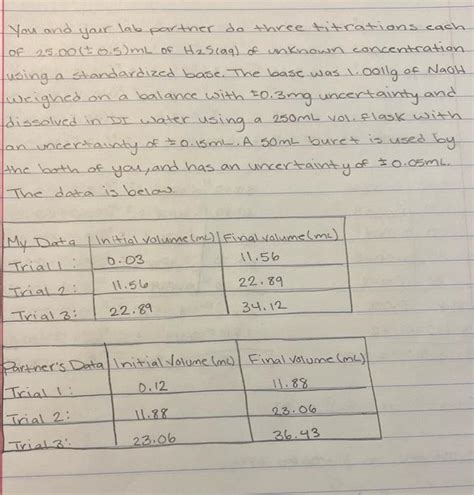 You and your lab partner do three titrations each
of 25.00(±0.5)mL of H2S(aq) of unknown concentration
using a standardized base. The base was 1.0011g of NaOH
weighed on a balance with ±0.3mg uncertainty and
dissolved in DI water using a 250mL vol. flask with
an uncertainty of ±0.15mL. A 50mL buret is used by
the both of you, and has an uncertainty of ±0.05mL.
The data is below
My Data | Initial volume (mL) | Final volume (mL)
Trial 1: | 0.03 | 11.56
Trial 2: | 11.56 | 22.89
Trial 3: | 22.89 | 34.12
Partner's Data | Initial Volume (mL) | Final Volume (mL)
Trial 1: | 0.12 | 11.88
Trial 2: | 11.88 | 23.06
Trial 3: | 23.06 | 36.43